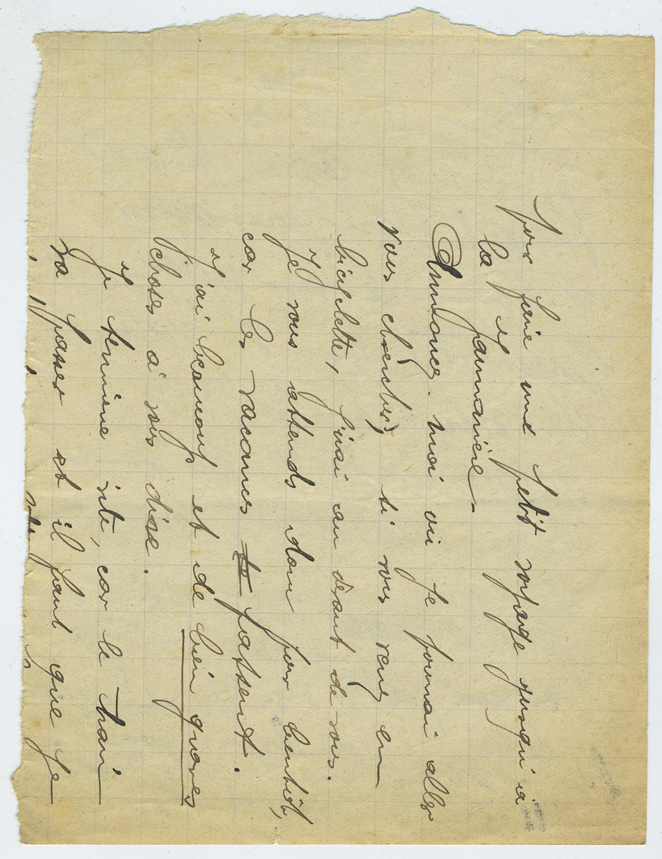 pour faire une petit voyage jusqu'à
la Jaumarière.
Annoncez. moi où je pourrai aller
vous chercher, si vous venez en
bicyclette, j'irai au devant de vous.
Je vous attends donc pour bientôt,
car les vacances passent.
J'ai beaucoup et de bien graves
choses à vous dire.
Je termine vite, car le train
va passer et il faut que je